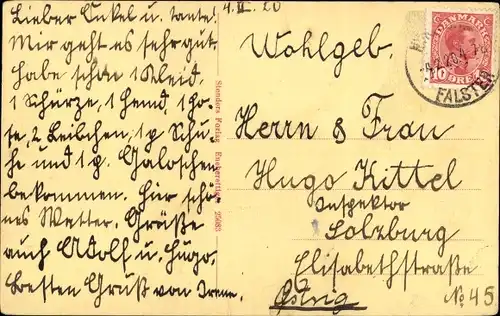 4. II. 20
Lieber Onkel u. Tante!
Mir geht es sehr gut.
Habe schon 1 Kleid,
1 Schürze, 1 Hemd, 1 Ho=
se, 2 Leibchen, 1 p Schu=
he und 1 p. Galoschen
bekommen. Hier schö=
nes Wetter. Grüße
auch Adolf u. Hugo.
Besten Gruß von Irene.
Stenders Forlag Eneberettiget 25083
Wohlgeb.
Herrn & Frau
Hugo Kittel
Inspektor
Solzburg
Elisabethstraße
No 45
Östrig
DANMARK
10 ØRE
FALSTER